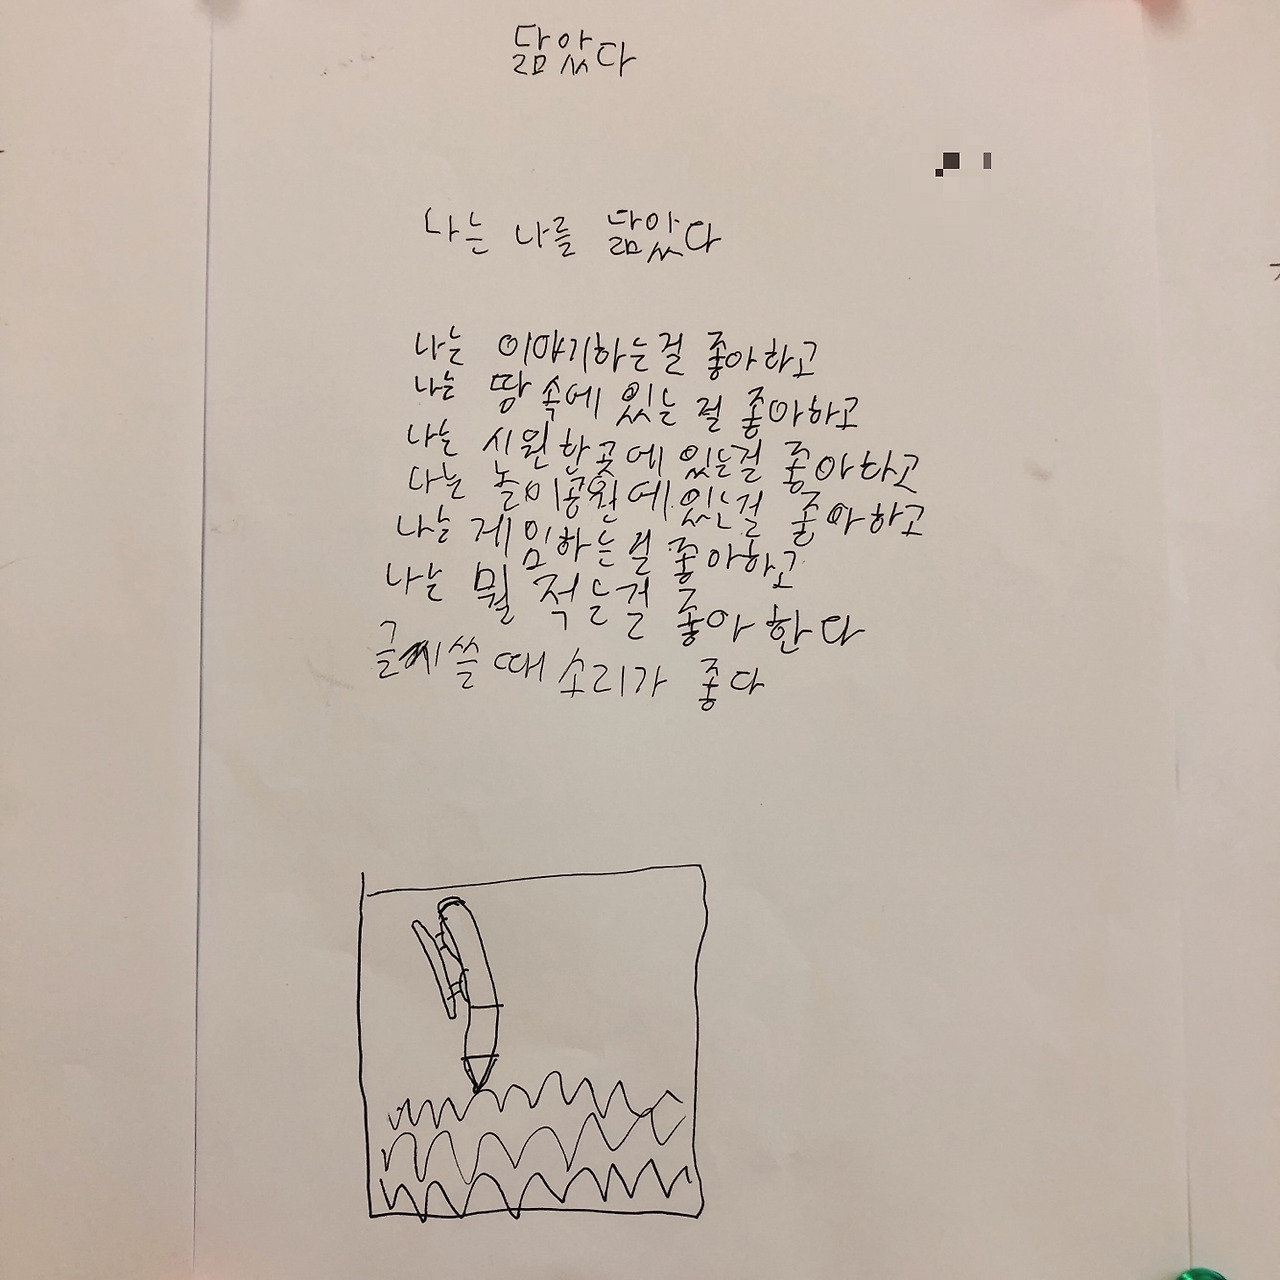 닮았다
나는 나를 닮았다
나는 이야기하는걸 좋아하고
나는 땅속에 있는 걸 좋아하고
나는 시원한곳에 있는걸 좋아하고
나는 놀이공원에 있는걸 좋아하고
나는 게임하는 걸 좋아하고
나는 뭘 적는걸 좋아한다
글씨쓸때 소리가 좋다